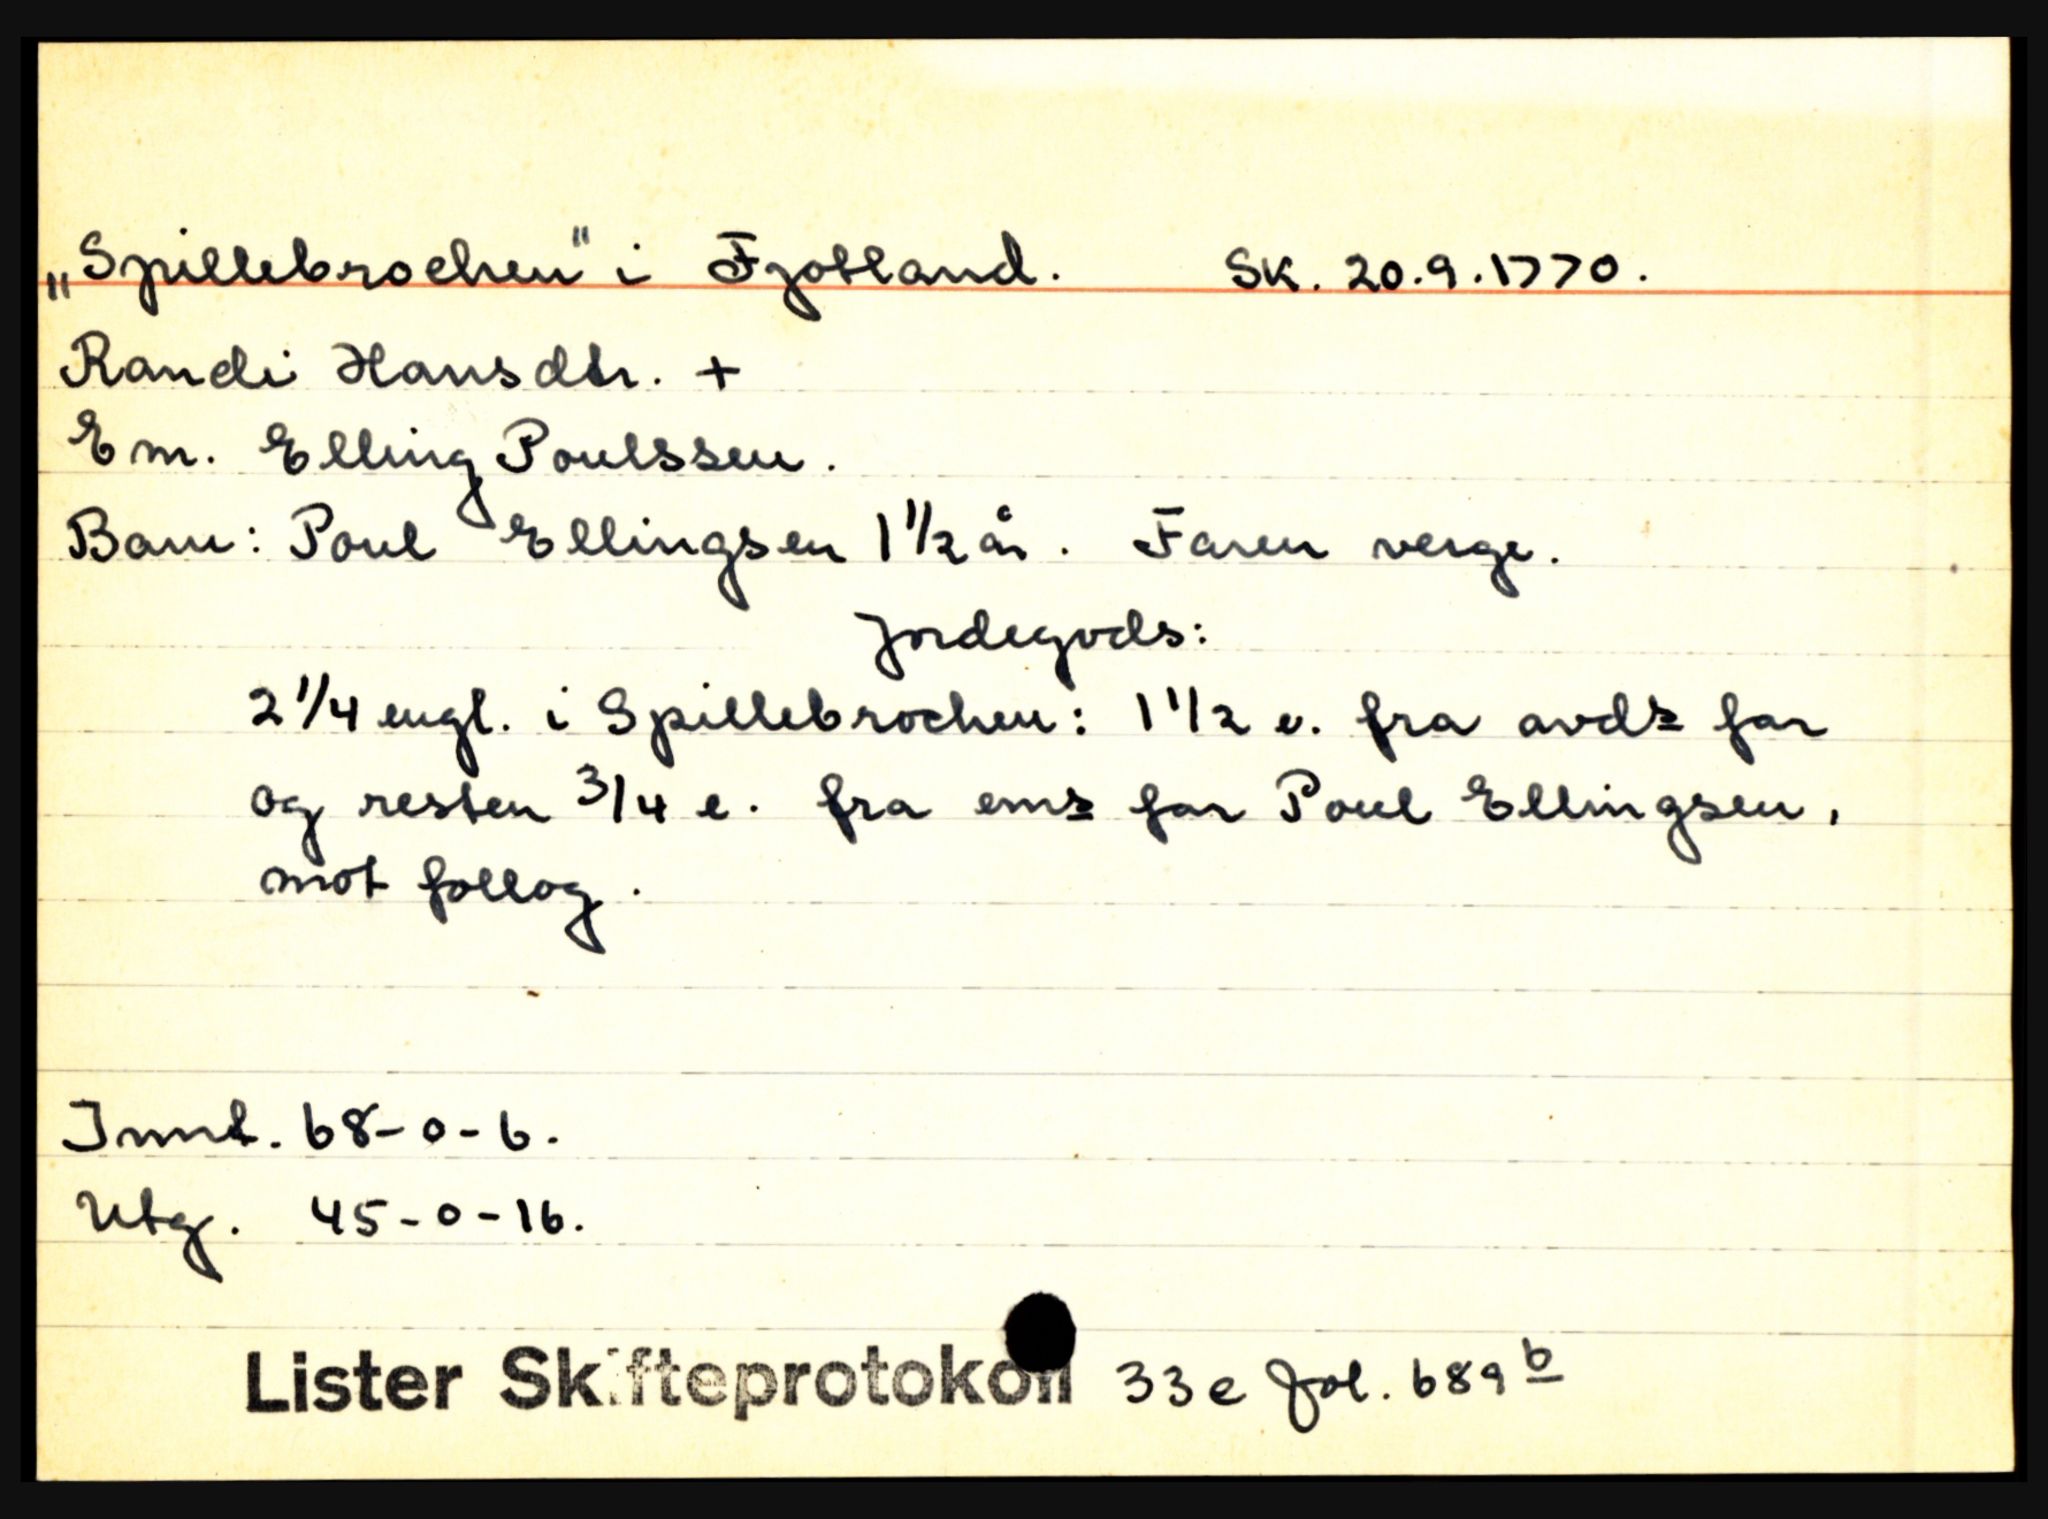 „Spillebrochen" i Fjotland. Sk. 20.9.1770.
Randi Hansdtr. +
Em. Elling Poulssen.
Barn: Poul Ellingsen 1 1/2 år. Faren verge.
Jordegods:
2 1/4 engl. i Spillebrochen: 1 1/2 e. fra avds far
og resten 3/4 e. fra ems far Poul Ellingsen,
mot follog.
Innt. 68-0-6.
Utg. 45-0-16.
Lister Skifteprotokoll 33e fol. 689b